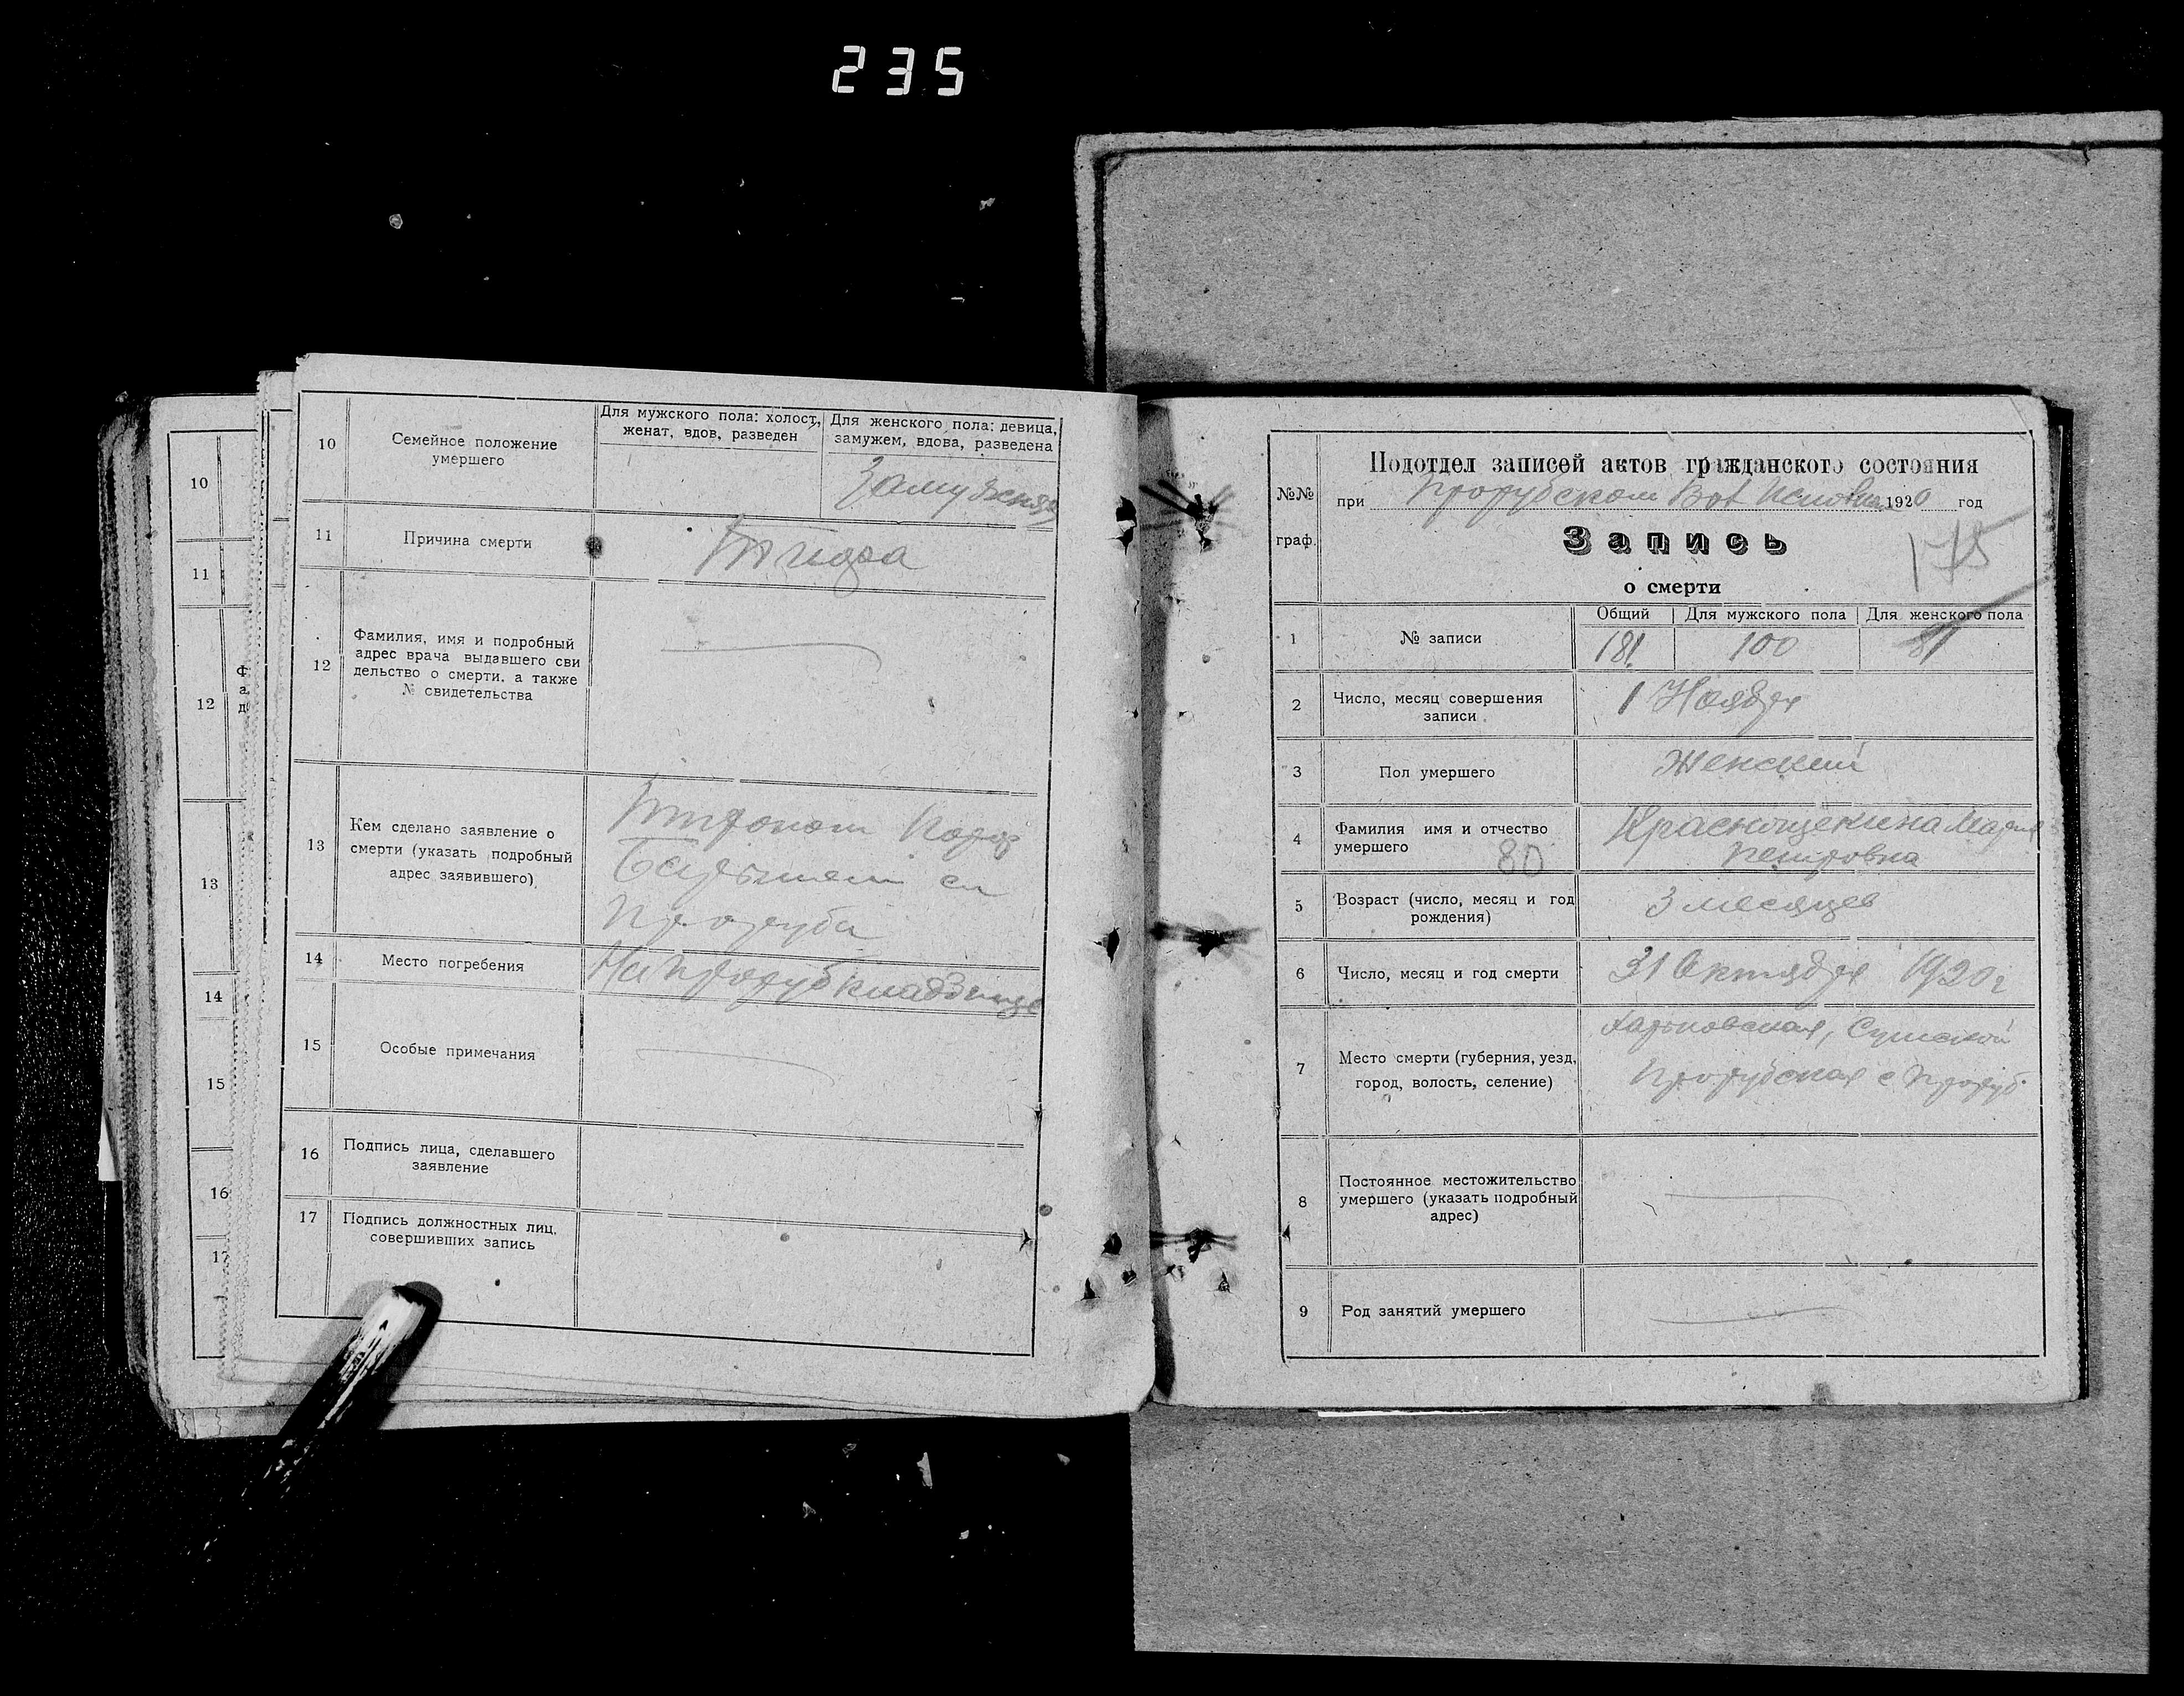 235
10
11
12
13
14
15
16
17
Ф
а
д
10
Семейное положение
умершего
Для мужского пола: холост,
женат, вдов, разведен
Для женского пола: девица,
замужем, вдова, разведена
Замужняя
11
Причина смерти
12
Фамилия, имя и подробный
адрес врача выдавшего сви
дельство о смерти, а также
№ свидетельства
13
Кем сделано заявление о
смерти (указать подробный
адрес заявившего)
14
Место погребения
На Проруб кладбище
15
Особые примечания
16
Подпись лица, сделавшего
заявление
17
Подпись должностных лиц,
совершивших запись
№№
граф.
Подотдел записей актов гражданского состояния
при Прорубском Вол Исполком 1920 год
Запись
175
о смерти
1
№ записи
Общий
Для мужского пола
Для женского пола
181
100
81
2
Число, месяц совершения
записи
1 Ноября
3
Пол умершего
Женский
4
Фамилия имя и отчество
умершего
80
Краснощекина Мария
Петровна
5
Возраст (число, месяц и год
рождения)
3 месяцев
6
Число, месяц и год смерти
31 Октября 1920 г
7
Место смерти (губерния, уезд,
город, волость, селение)
Харьковская, Сумской
Прорубская с Проруб
8
Постоянное местожительство
умершего (указать подробный
адрес)
9
Род занятий умершего